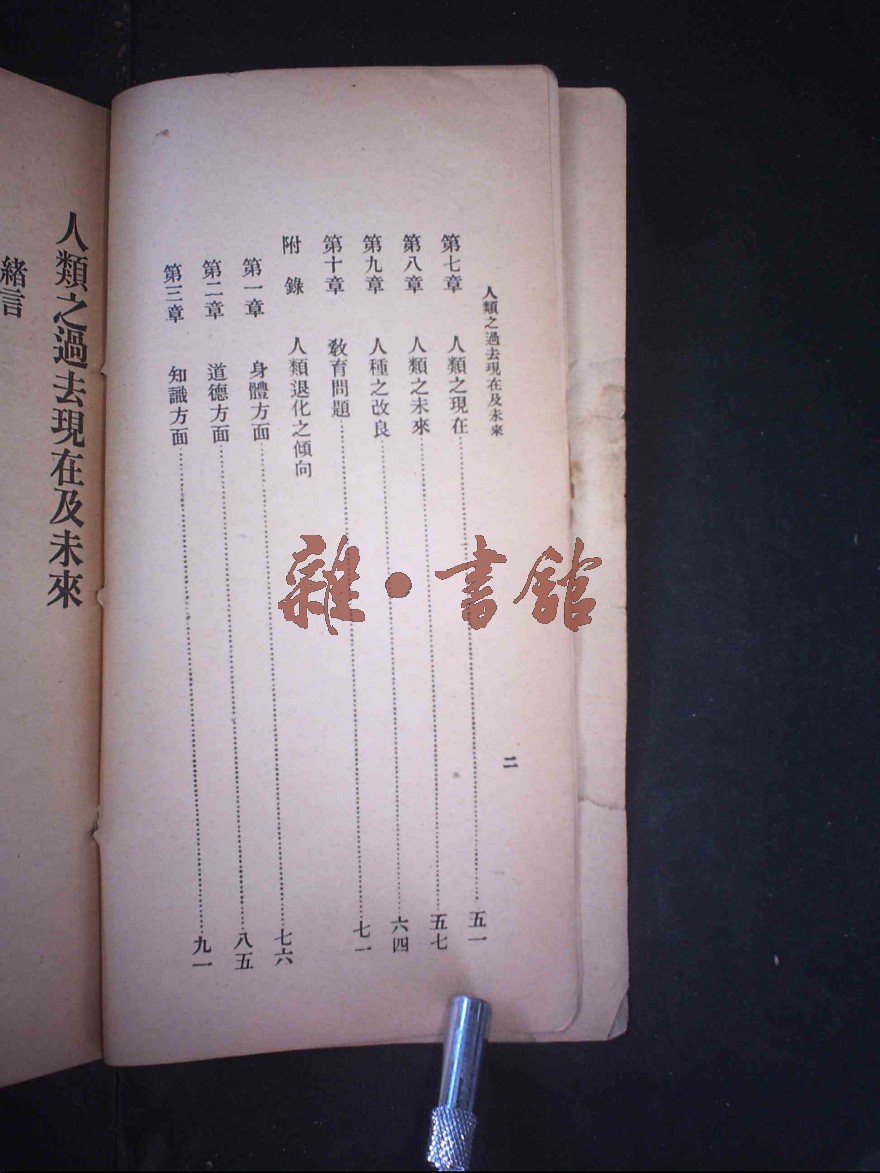 人類之過去現在及未來
二
第七章 人類之現在……五一
第八章 人類之未來……五七
第九章 人種之改良……六四
第十章 教育問題……七一
附錄 人類退化之傾向
第一章 身體方面……七六
第二章 道德方面……八五
第三章 知識方面……九一
人類之過去現在及未來
緒言
雜·書館